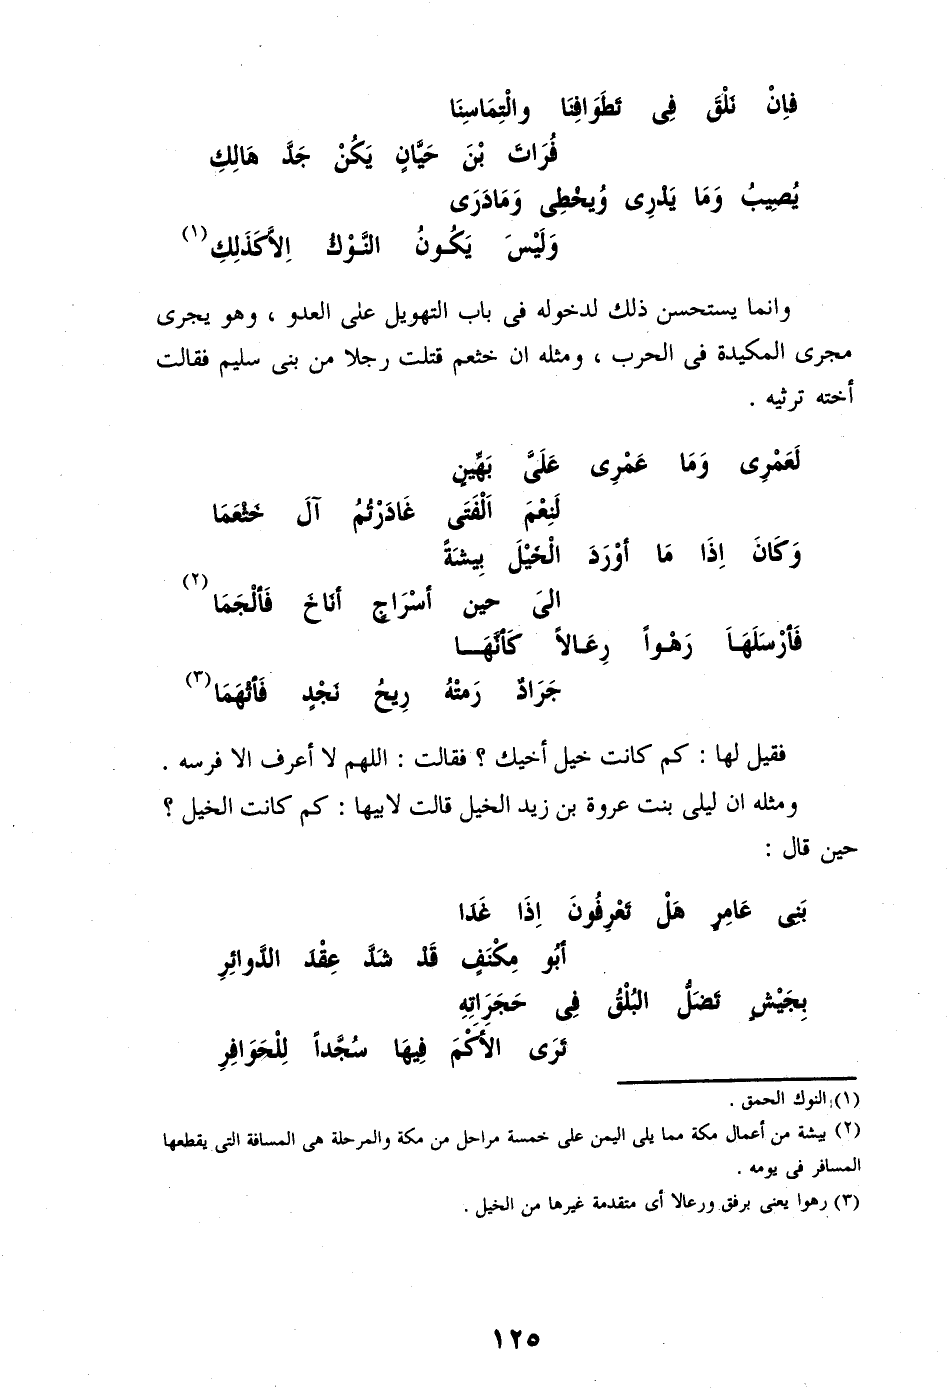 فإِنْ نَلْقَ فِى تَطَوَافِنَا والْتِمَاسِنَا
فُرَاتَ بْنَ حَيَّانٍ يَكُنْ جَدَّ هَالِكِ
يُصِيبُ وَمَا يَدْرِى وُيخْطِى وَمَادَرَى
وَلَيْسَ يَكُونُ النَّوْكُ اِلاَّكَذَلِكِ (١)
وانما يستحسن ذلك لدخوله فى باب التهويل على العدو ، وهو يجرى
مجرى المكيدة فى الحرب ، ومثله ان خثعم قتلت رجلا من بنى سليم فقالت
أخته ترثيه .
لَعَمْرِى وَمَا عَمْرِى عَلَىَّ بَهِّينٍ
لَنِعْمَ اَلْفَتَى غَادَرْتُمُ آلَ خَثْعَمَا
وَكَانَ إِذَا مَا أوْرَدَ الْخَيْلَ بِيشَةً
الىَ حين أسْرَاجٍ أنَاخَ فَألْجَمَا (٢)
فَأرْسَلَهَا رَهْواً رِعَالاً كَأنَّهَا
جَرَادٌ رَمتْهُ رِيحُ نَجْدٍ فَأتْهَمَا (٣)
فقيل لها : كم كانت خيل أخيك ؟ فقالت : اللهم لا أعرف الا فرسه .
ومثله ان ليلى بنت عروة بن زيد الخيل قالت لابيها : كم كانت الخيل ؟
حين قال :
بَنِى عَامِرٍ هَلْ تَعْرِفُونَ إِذَا غَدَا
أبُو مِكْنَفٍ قَدْ شَدَّ عِقْدَ الدَّوائِرِ
بِجَيْشٍ تَضَلُّ البُلْقُ فِى حَجَرَاتِهِ
تَرَى الأَكْمَ فِيهَا سُجَّداً لِلْحَوَافِرِ
(١) النوك الحمق .
(٢) بيشة من أعمال مكة مما يلى اليمن على خمسة مراحل من مكة والمرحلة هى المسافة التى يقطعها
المسافر فى يومه .
(٣) رهوا يعنى برفق ورعالا أى متقدمة غيرها من الخيل .
١٢٥